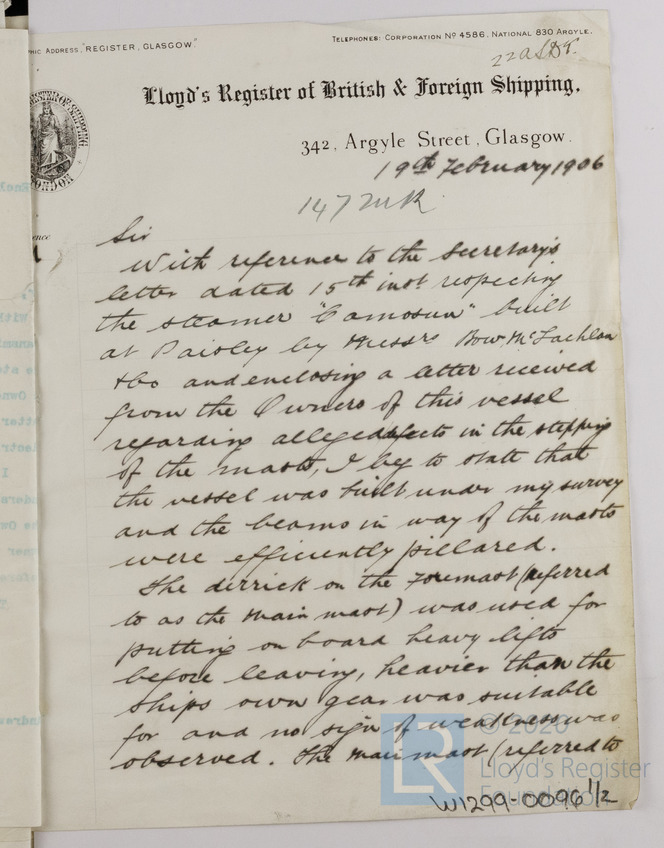 PHIC ADDRESS, "REGISTER, GLASGOW."
TELEPHONES: CORPORATION No 4586. NATIONAL 830 ARGYLE.
Lloyd's Register of British & Foreign Shipping.
342, Argyle Street, Glasgow.
19th February 1906
147
LONDON
ence
Sir
With reference to the Secretary's
letter dated 15th inst respecting
the steamer "Camosun" built
at Paisley by Messrs Bow, McLachlan
& Co and enclosing a letter received
from the Owners of this vessel
regarding alleged defects in the stepping
of the masts, I beg to state that
the vessel was built under my survey
and the beams in way of the masts
were efficiently pillared.
The derrick on the Foremast (referred
to as the Main mast) was used for
putting on board heavy lifts
before leaving, heavier than the
ships own gear was suitable
for and no sign of weakness was
observed. The Main mast (referred to
LR
© 2020
Lloyd's Register
Foundation
W1299-0096 1/2